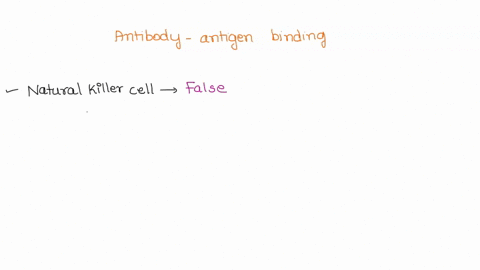 Antibody - antigen binding
✓ Natural Killer cell → False